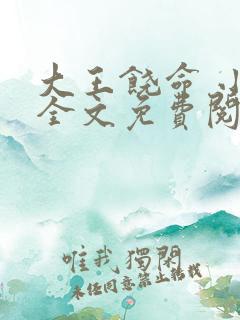 大王饶命 小
全文免費閱
唯我獨閑
未经同意禁止转载